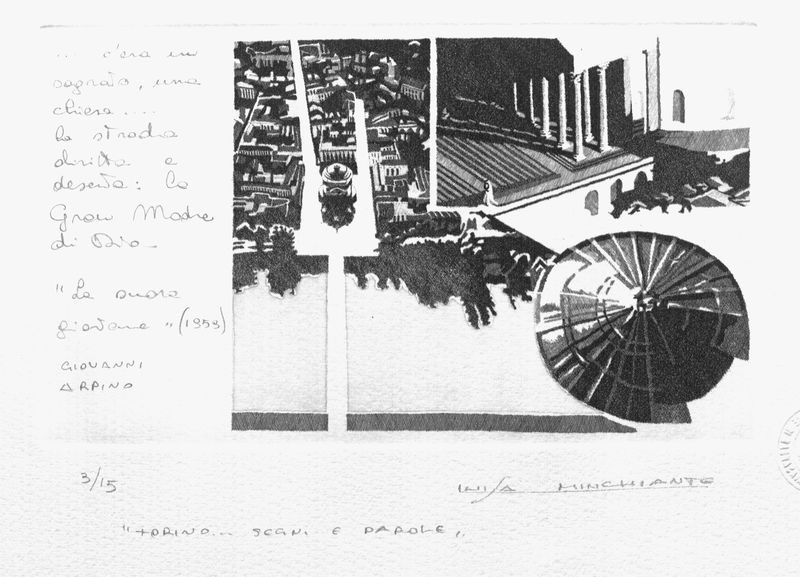 ... c'era un
sagrato, una
chiesa ....
la strada
diritta e
deserta: la
Gran Madre
di Dio_
"La suora
giovane" (1959)
GIOVANNI
ARPINO
3/15
LUISA MINCHIANTE
"TORINO... SEGNI E PAROLE"